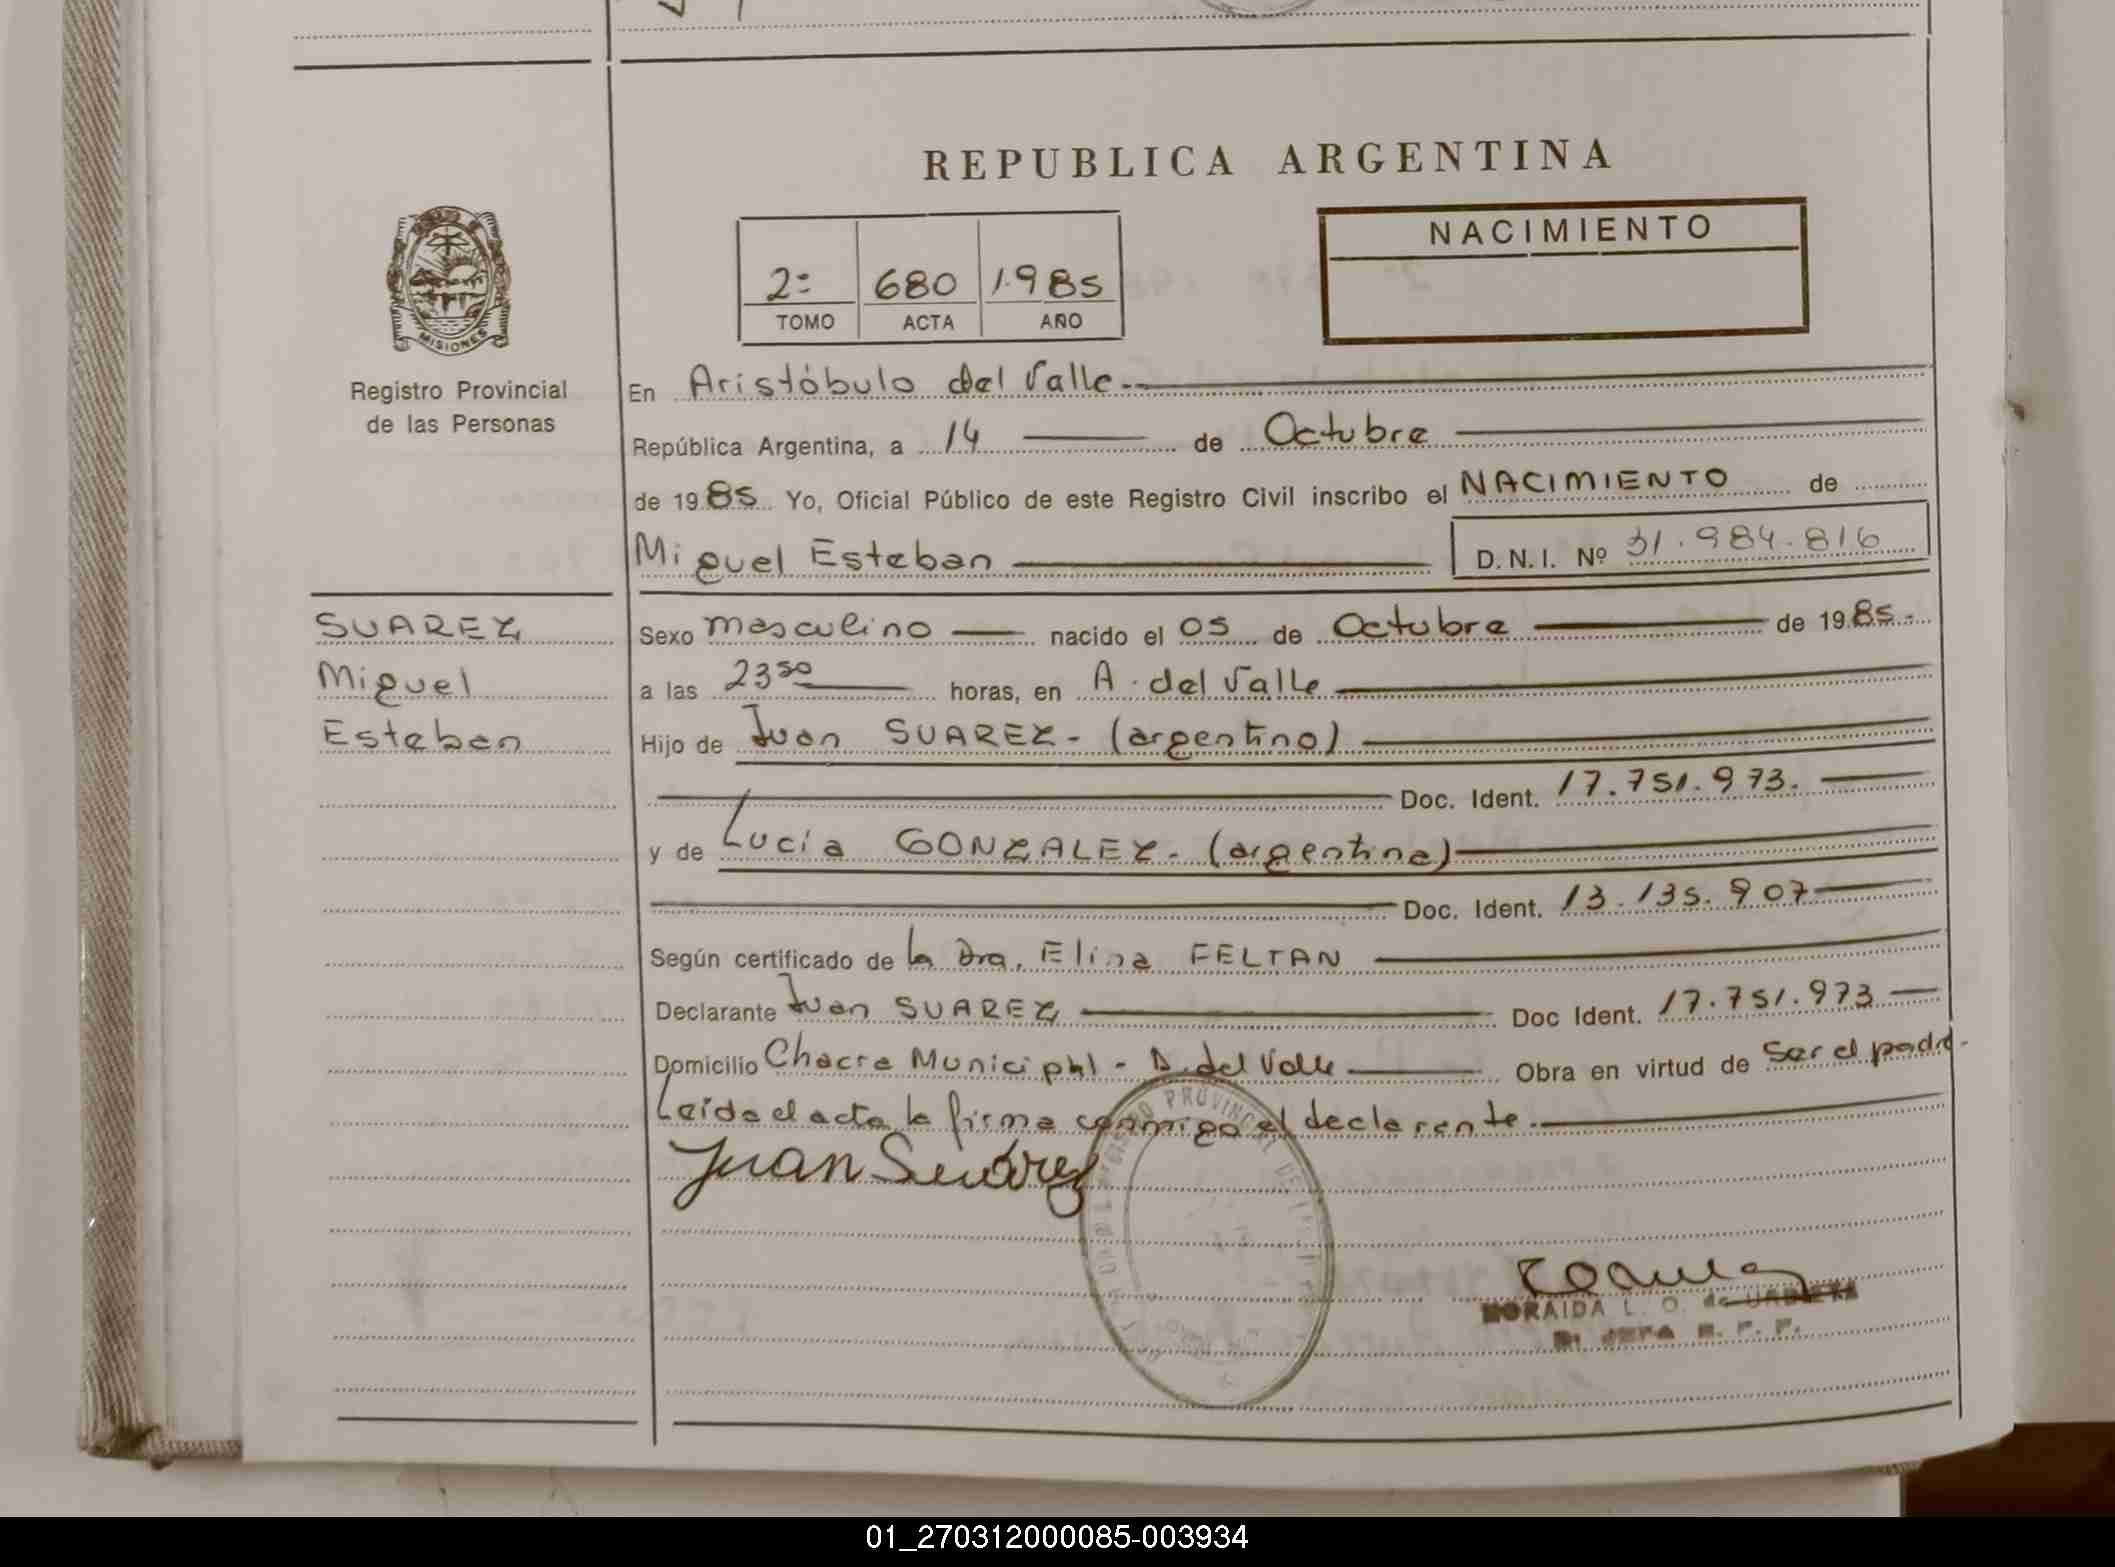 REPUBLICA ARGENTINA
NACIMIENTO
2º 680 1.985
TOMO ACTA AÑO
MISIONES
Registro Provincial
de las Personas
En Aristóbulo del Valle.-
República Argentina, a 14 de Octubre
de 19 85 Yo, Oficial Público de este Registro Civil inscribo el NACIMIENTO de
Miguel Esteban D.N.I. Nº 31.984.816
SUAREZ
Miguel
Esteban
Sexo masculino nacido el 05 de Octubre de 19 85.-
a las 23 50 horas, en A. del Valle
Hijo de Juan SUAREZ- (argentino)
Doc. Ident. 17.751.973.
y de Lucía GONZALEZ- (argentina)
Doc. Ident. 13.135.907
Según certificado de la Dra. Elina FELTAN
Declarante Juan SUAREZ Doc Ident. 17.751.973
Domicilio Chacra Municipal - A. del Valle Obra en virtud de ser el padre-
Leída el acta la firma conmigo el declarente.
Juan Suárez
PROVINCIAL DE
L. O. de
01_270312000085-003934